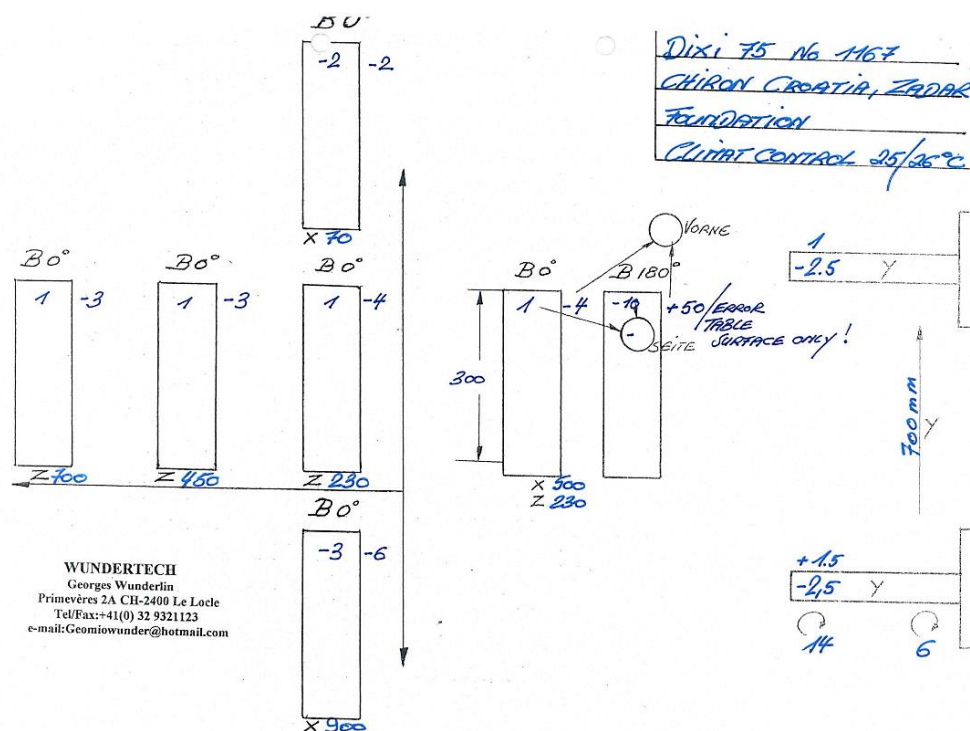 B 0°
-2 -2
X 70
Dixi 75 No 1167
CHIRON CROATIA, ZADAR
FOUNDATION
CLIMAT CONTROL 25/26°C
B 0°
1 -3
Z 700
B 0°
1 -3
Z 450
B 0°
1 -4
Z 230
B 0°
-3 -6
X 900
VORNE
B 0°
1 -4
B 180°
-10
+50/ERROR
TABLE
SURFACE ONLY!
-
SEITE
300
X 500
Z 230
1
-2.5 Y
700mm
Y
+1.5
-2,5 Y
14 6
WUNDERTECH
Georges Wunderlin
Primevères 2A CH-2400 Le Locle
Tel/Fax:+41(0) 32 9321123
e-mail:Geomiowunder@hotmail.com